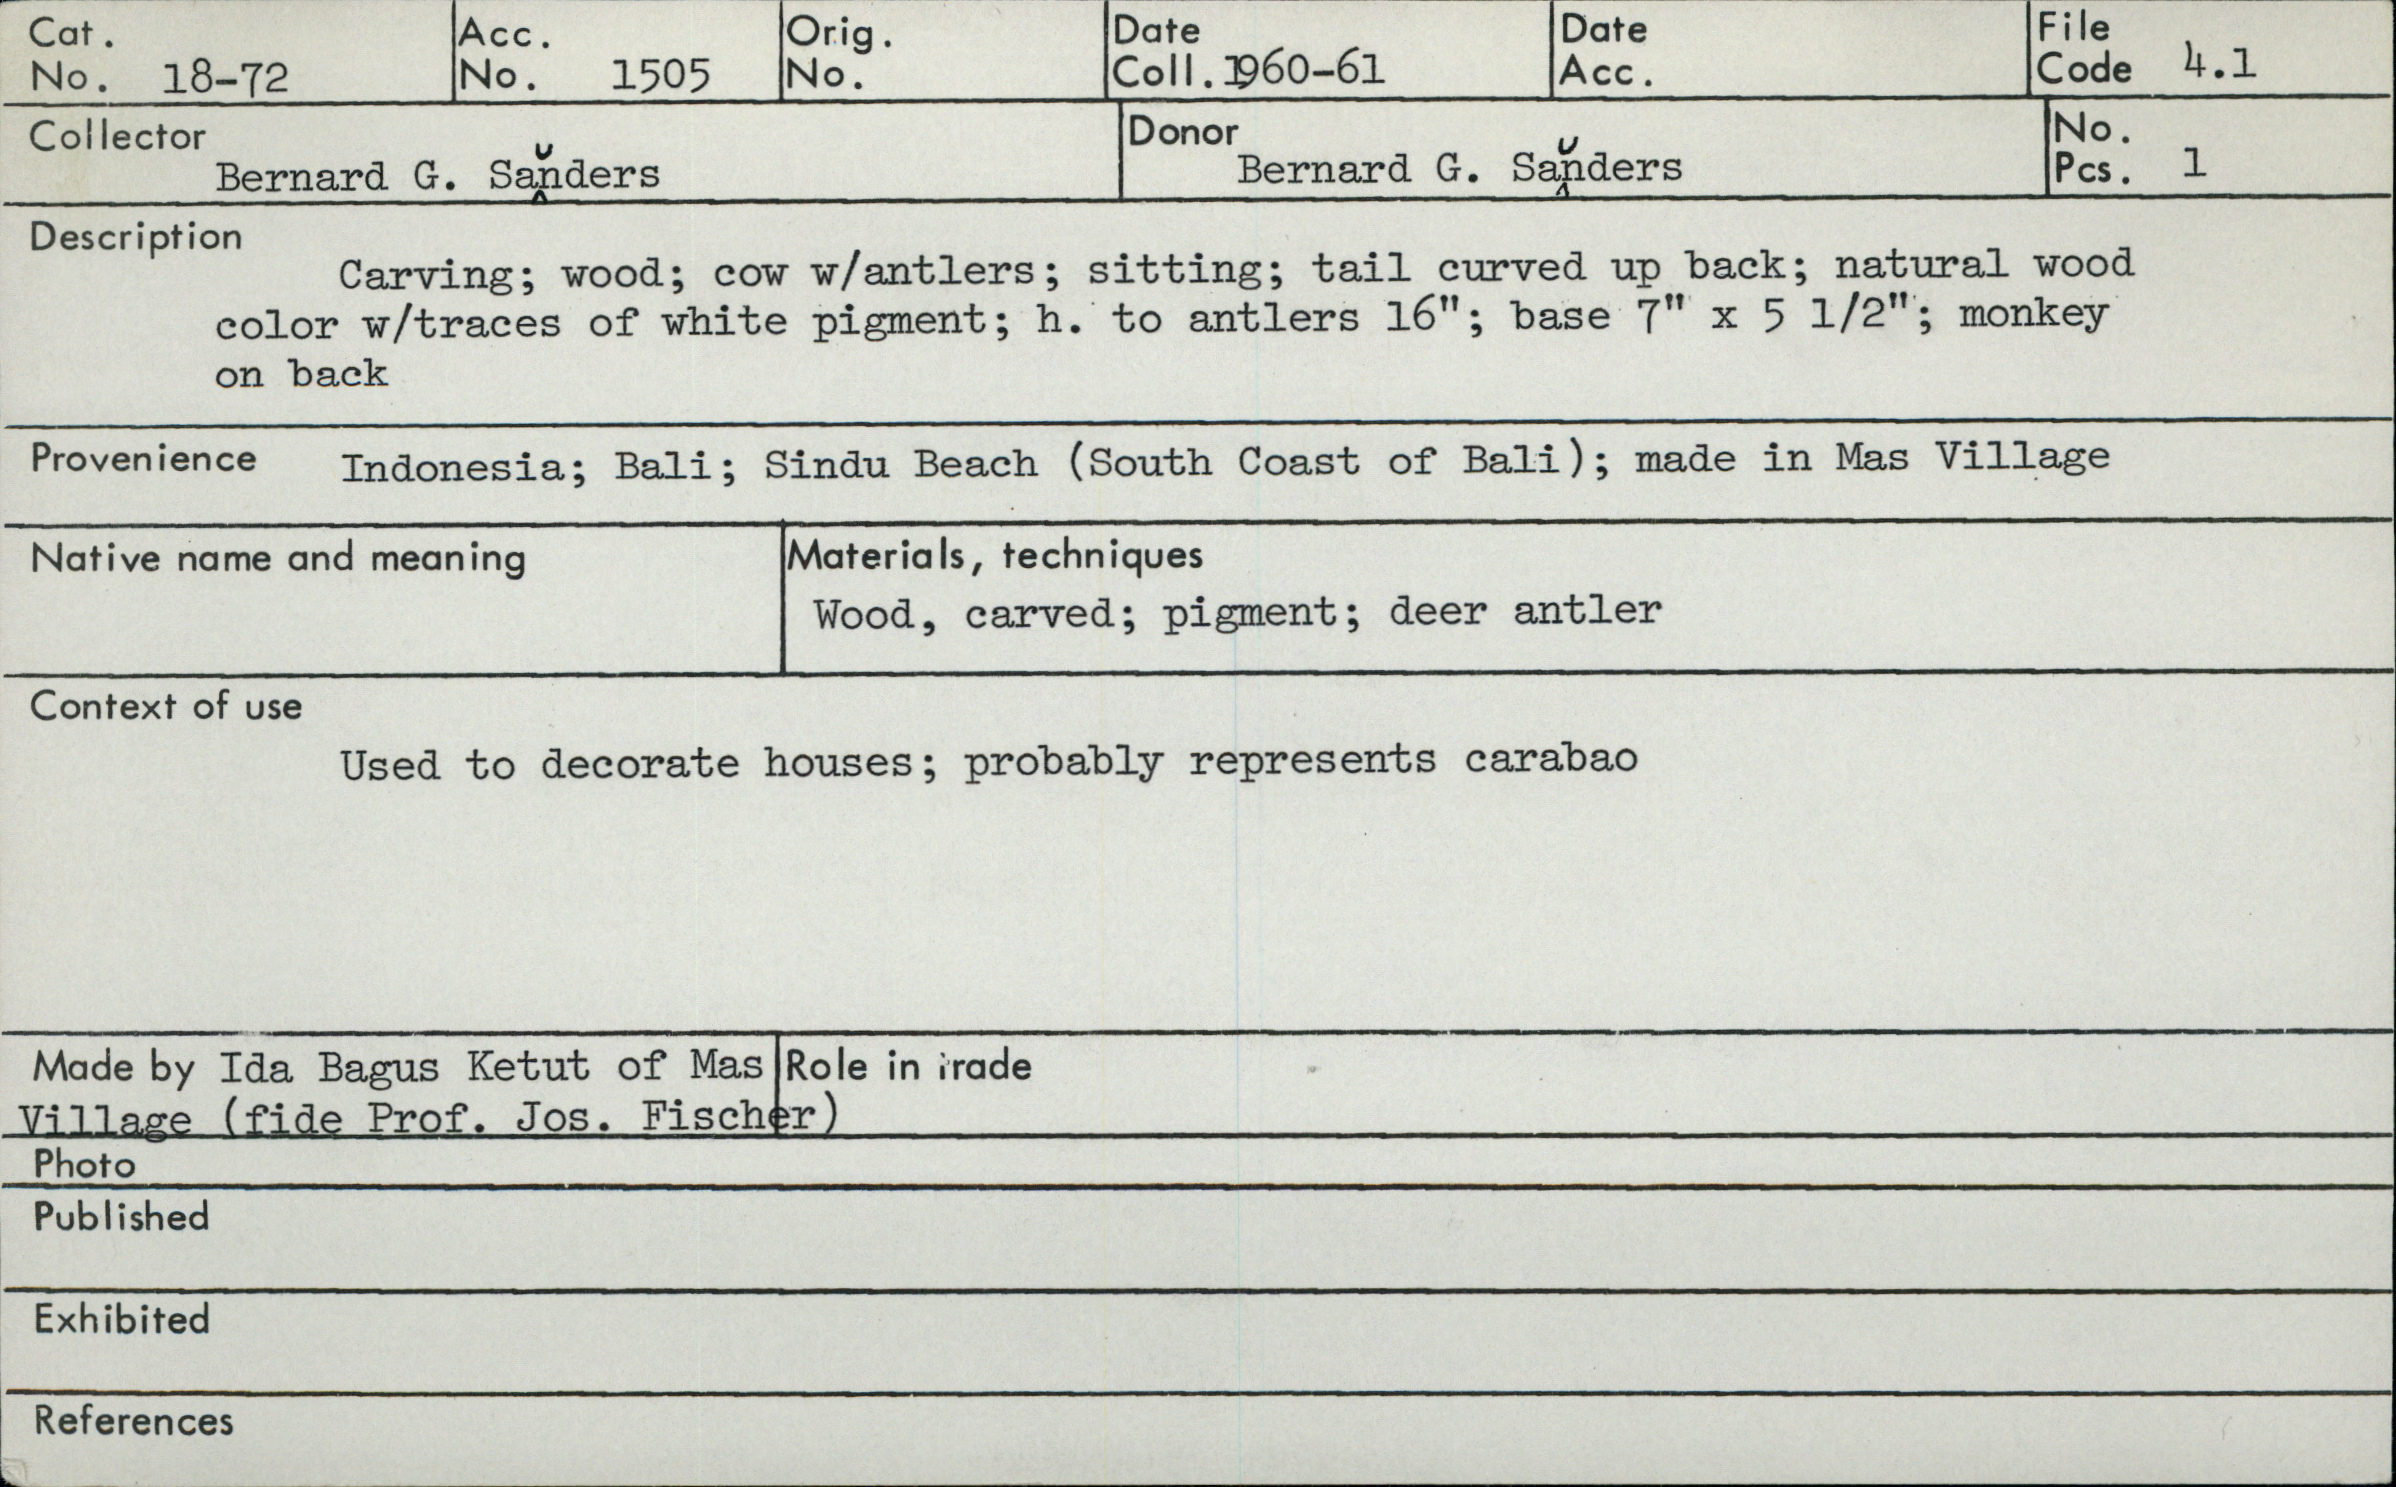 Cat. No. 18-72
Acc. No. 1505
Orig. No.
Date Coll. 1960-61
Date Acc.
File Code 4.1
Collector
Bernard G. Saunders
Donor
Bernard G. Saunders
No. Pcs. 1
Description
Carving; wood; cow w/antlers; sitting; tail curved up back; natural wood
color w/traces of white pigment; h. to antlers 16"; base 7" x 5 1/2"; monkey
on back
Provenience Indonesia; Bali; Sindu Beach (South Coast of Bali); made in Mas Village
Native name and meaning
Materials, techniques
Wood, carved; pigment; deer antler
Context of use
Used to decorate houses; probably represents carabao
Made by Ida Bagus Ketut of Mas
Village (fide Prof. Jos. Fischer)
Role in trade
Photo
Published
Exhibited
References